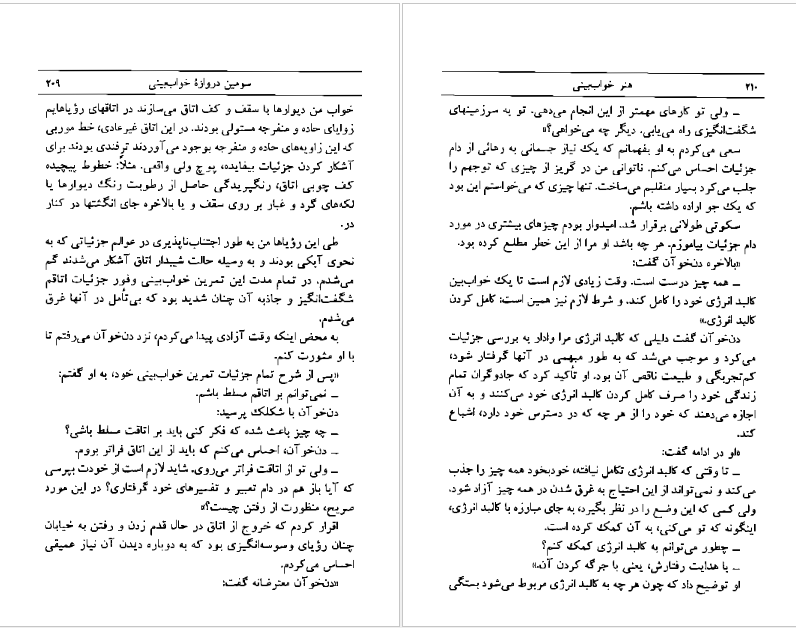 سومین دروازهٔ خواب‌بینی ۲۰۹
خواب من دیوارها با سقف و کف اتاق می‌سازند در اتاقهای رؤیاهایم
زوایای حاده و منفرجه مستولی بودند. در این اتاق غیرعادی، خط موربی
که این زاویه‌های حاده و منفرجه بوجود می‌آوردند ترفندی بودند برای
آشکار کردن جزئیات بیفایده، پوچ ولی واقعی. مثلاً: خطوط پیچیده
کف چوبی اتاق، رنگپریدگی حاصل از رطوبت رنگ دیوارها یا
لکه‌های گرد و غبار بر روی سقف و یا بالاخره جای انگشتها در کنار
در.
طی این رؤیاها من به طور اجتناب‌ناپذیری در عوالم جزئیاتی که به
نحوی آبکی بودند و به وسیله حالت شیبدار اتاق آشکار می‌شدند گم
می‌شدم. در تمام مدت این تمرین خواب‌بینی وفور جزئیات اتاقم
شگفت‌انگیز و جاذبه آن چنان شدید بود که بی‌تأمل در آنها غرق
می‌شدم.
به محض اینکه وقت آزادی پیدا می‌کردم، نزد دن‌خوآن می‌رفتم تا
با او مشورت کنم.
«پس از شرح تمام جزئیات تمرین خواب‌بینی خود، به او گفتم:
ـ نمی‌توانم بر اتاقم مسلط باشم.
دن‌خوآن با شکلک پرسید:
ـ چه چیز باعث شده که فکر کنی باید بر اتاقت مسلط باشی؟
ـ دن‌خوآن، احساس می‌کنم که باید از این اتاق فراتر بروم.
ـ ولی تو از اتاقت فراتر می‌روی. شاید لازم است از خودت بپرسی
که آیا باز هم در دام تعبیر و تفسیرهای خود گرفتاری؟ در این مورد
صریح، منظورت از رفتن چیست؟»
اقرار کردم که خروج از اتاق در حال قدم زدن و رفتن به خیابان
چنان رؤیای وسوسه‌انگیزی بود که به دوباره دیدن آن نیاز عمیقی
احساس می‌کردم.
«دن‌خوآن معترضانه گفت:
۲۱۰ هنر خواب‌بینی
ـ ولی تو کارهای مهمتر از این انجام می‌دهی. تو به سرزمینهای
شگفت‌انگیزی راه می‌یابی. دیگر چه می‌خواهی؟»
سعی می‌کردم به او بفهمانم که یک نیاز جسمانی به رهائی از دام
جزئیات احساس می‌کنم. ناتوانی من در گریز از چیزی که توجهم را
جلب می‌کرد بسیار منقلبم می‌ساخت. تنها چیزی که می‌خواستم این بود
که یک جو اراده داشته باشم.
سکوتی طولانی برقرار شد. امیدوار بودم چیزهای بیشتری در مورد
دام جزئیات بیاموزم. هر چه باشد او مرا از این خطر مطلع کرده بود.
«بالاخره دن‌خوآن گفت:
ـ همه چیز درست است. وقت زیادی لازم است تا یک خواب‌بین
کالبد انرژی خود را کامل کند. و شرط لازم نیز همین است: کامل کردن
کالبد انرژی.»
دن‌خوآن گفت دلیلی که کالبد انرژی مرا وادار به بررسی جزئیات
می‌کرد و موجب می‌شد که به طور مبهمی در آنها گرفتار شود،
کم‌تجربگی و طبیعت ناقص آن بود. او تأکید کرد که جادوگران تمام
زندگی خود را صرف کامل کردن کالبد انرژی خود می‌کنند و به آن
اجازه می‌دهند که خود را از هر چه که در دسترس خود دارد، اشباع
کند.
«او در ادامه گفت:
ـ تا وقتی که کالبد انرژی تکامل نیافته، خودبخود همه چیز را جذب
می‌کند و نمی‌تواند از این احتیاج به غرق شدن در همه چیز آزاد شود.
ولی کسی که این وضع را در نظر بگیرد، به جای مبارزه با کالبد انرژی،
اینگونه که تو می‌کنی، به آن کمک کرده است.
ـ چطور می‌توانم به کالبد انرژی کمک کنم؟
ـ با هدایت رفتارش، یعنی با جرگه کردن آن.»
او توضیح داد که چون هر چه به کالبد انرژی مربوط می‌شود بستگی